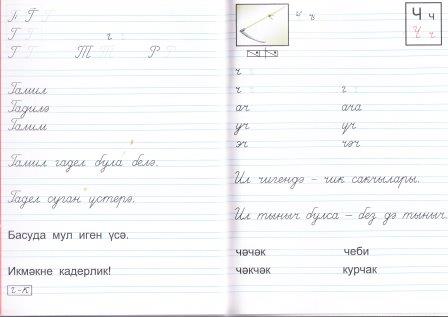 Г Г Г
Г г
Г Т Р
Гамил
Гадилә
Галим
Гамил гадел була белә.
Гадел суган үстерә.
Басуда мул иген үсә.
Икмәкне кадерлик!
г-к
Ч ч
Ч ч
ч
ч г
ач ача
уч уч
эч чәч
Ил чигендә – чик сакчылары.
Ил тыныч булса – без дә тыныч.
чәчәк чеби
чәкчәк курчак